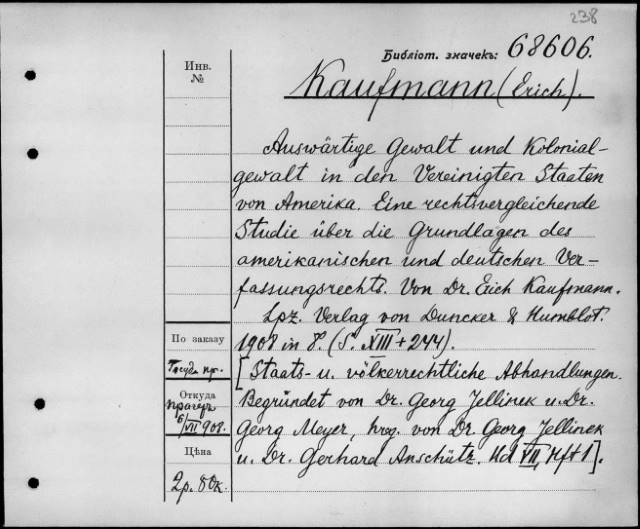 238
Библіот. значекъ: 68606.
Инв.
№
Kaufmann (Erich).
Auswärtige Gewalt und Kolonial-
gewalt in den Vereinigten Staaten
von Amerika. Eine rechtsvergleichende
Studie über die Grundlagen des
amerikanischen und deutschen Ver-
fassungsrechts. Von Dr. Erich Kaufmann.
Lpz. Verlag von Duncker & Humblot.
1908 in 8. (S. XIII + 244).
[Staats- u. völkerrechtliche Abhandlungen.
Begründet von Dr. Georg Jellinek u. Dr.
Georg Meyer, hrsg. von Dr. Georg Jellinek
u. Dr. Gerhard Anschütz. Bd VII, Hft 1].
По заказу
Госуд. пр.
Откуда
Прагеръ
6/VII 908.
Цѣна
2р. 80к.